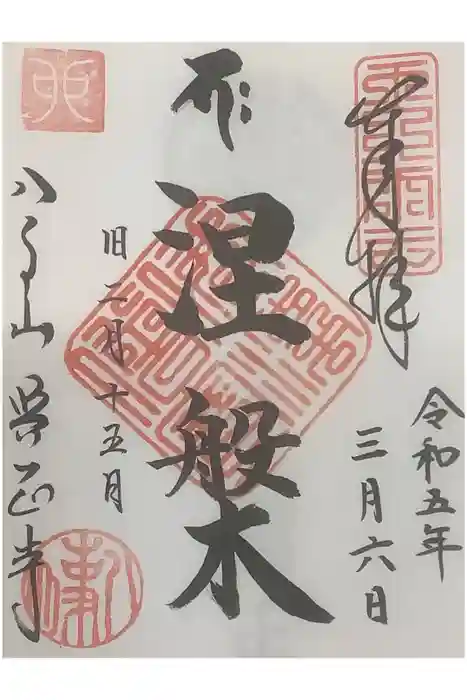 奉拝
令和五年
三月六日
涅槃
旧二月十五日
八事山 興正寺